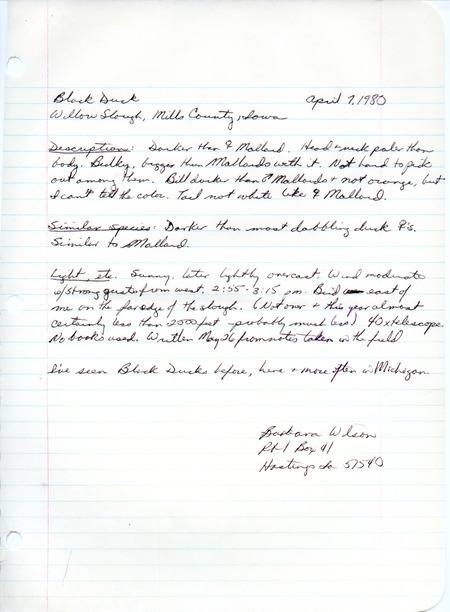 Black Duck April 7, 1980
Willow Slough, Mills County, Iowa
Description: Darker than ♀ Mallard. Head + neck paler than
body. Bulky, bigger than Mallards with it. Not hard to pick
out among them. Bill darker than ♂ Mallards + not orange, but
I can't tell the color. Tail not white like ♀ Mallard.
Similar species: Darker than most dabbling duck ♀s.
Similar to Mallard.
Light, etc. Sunny, later lightly overcast. Wind moderate
w/strong gusts from west. 2:55-3:15 pm. Bird east of
me on the far edge of the slough. (Not over + this year almost
certainly less than 2000 feet probably much less) 40x telescope.
No books used. Written May 26 from notes taken in the field
I've seen Black Ducks before, here + more often in Michigan.
Barbara Wilson
Rt 1 Box 41
Hastings Ia 51540